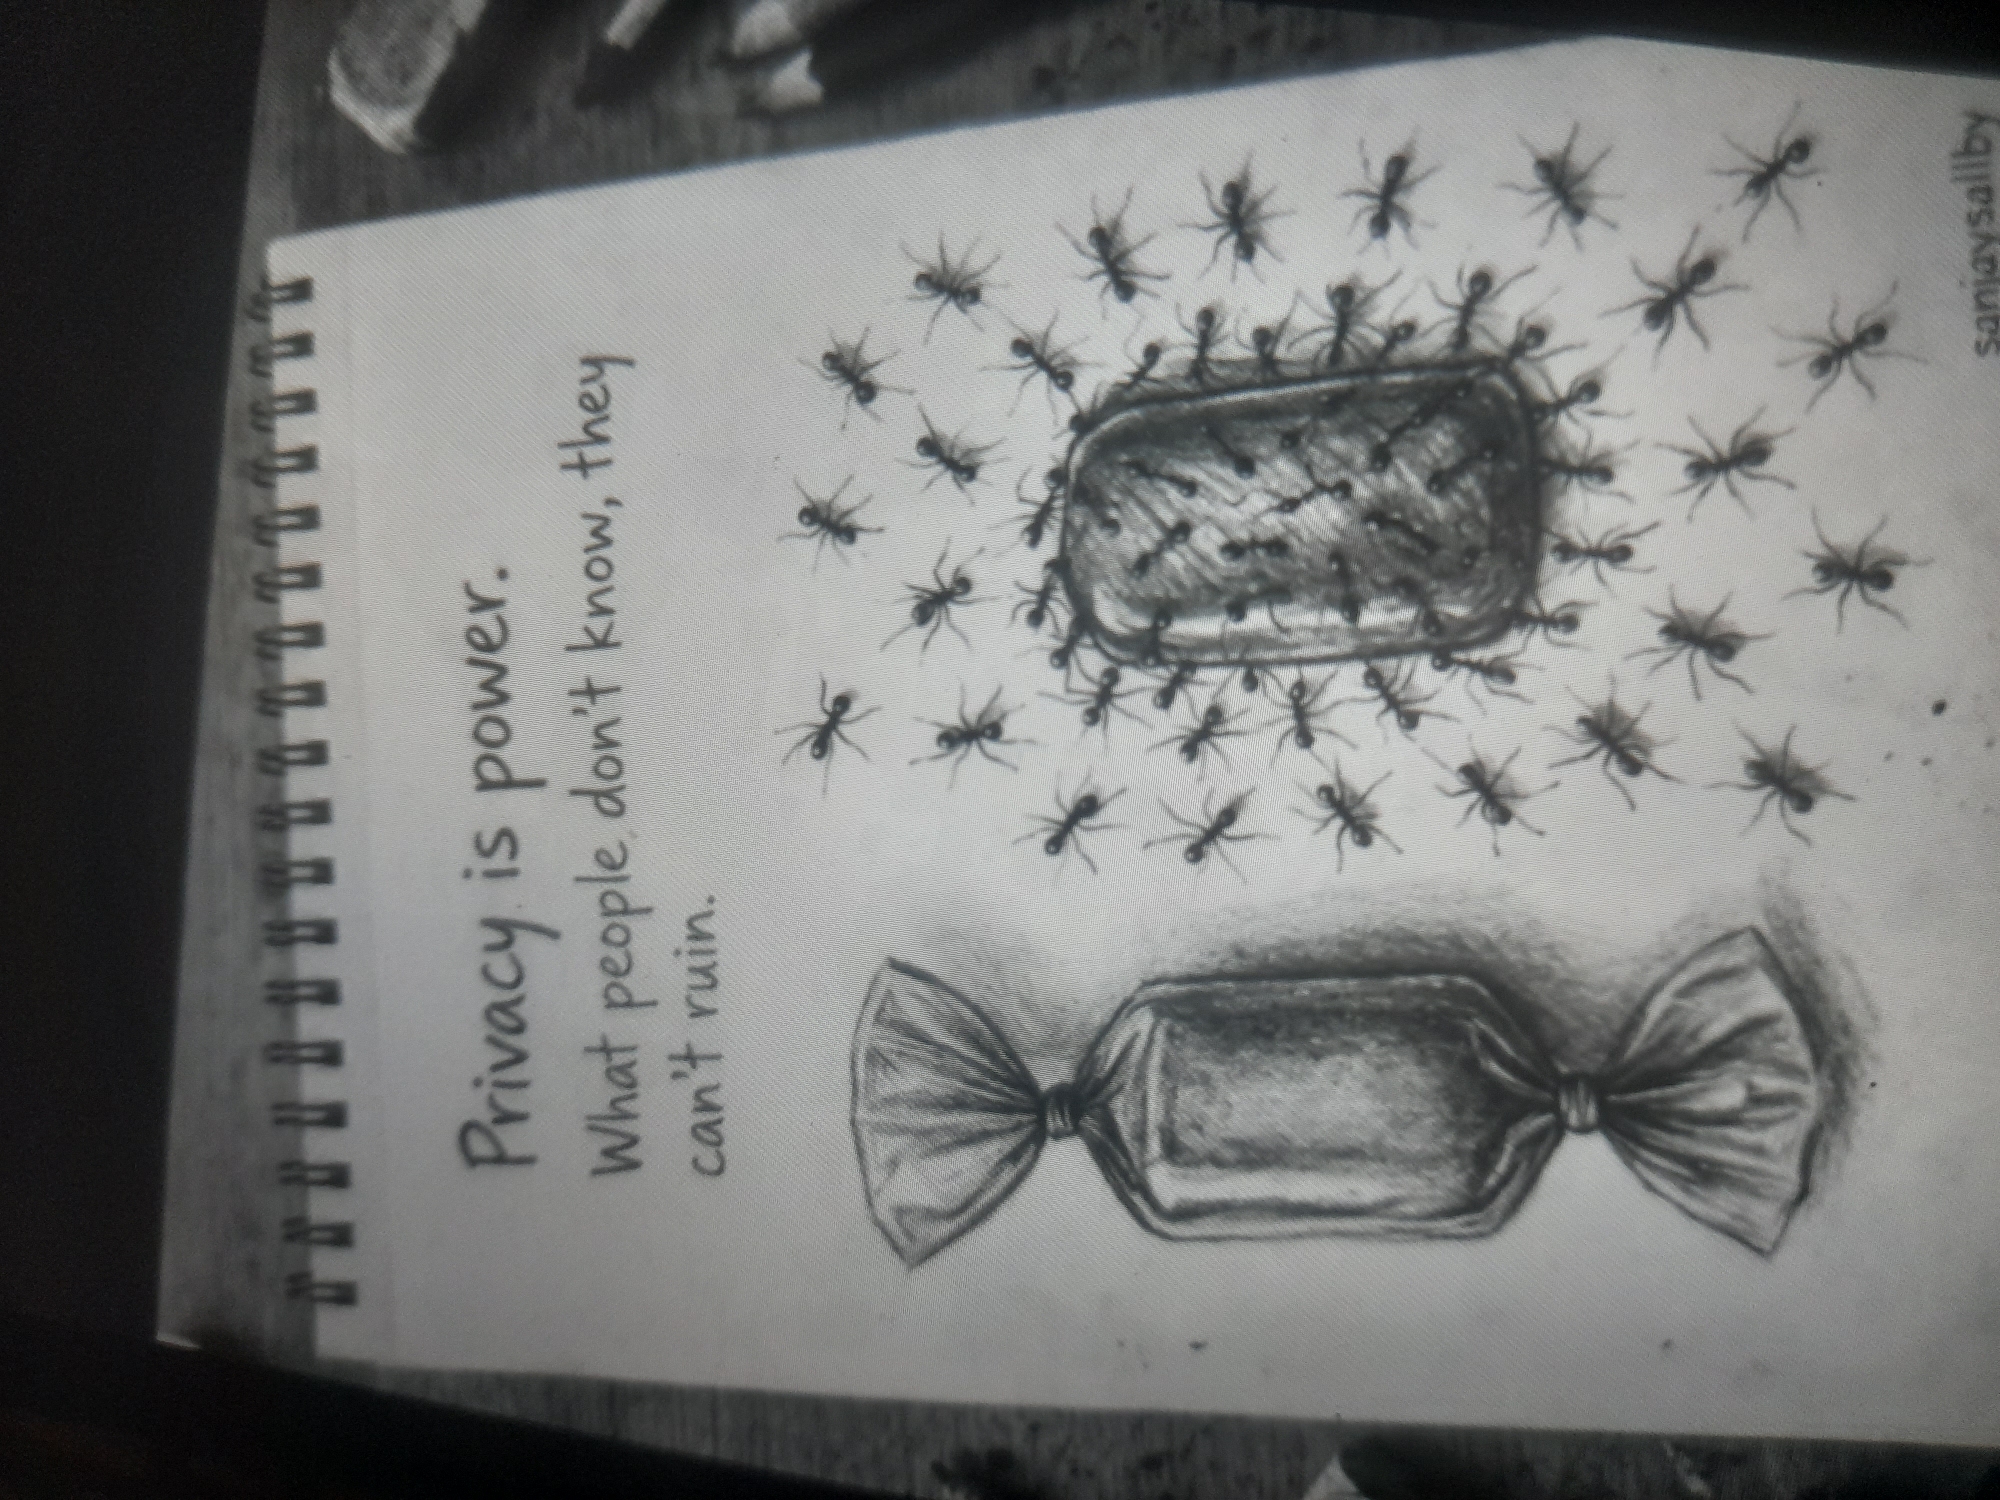 Privacy is power.
What people don't know, they
can't ruin.
sanjaysallby